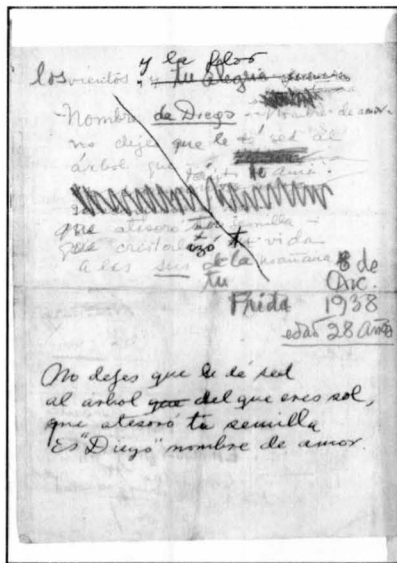 y la flor
los vientos y tu alegria
Nombre de Diego - Nombre de amor.
no dejes que le dé sed al
árbol que tanto te ama.
que atesoró tu semilla
que cristalizó tu vida
a las seis de la mañana
tu Frida
8 de Dic.
1938
edad 28 Años
No dejes que le dé sed
al árbol que del que eres sol,
que atesoró tu semilla
Es "Diego" nombre de amor.